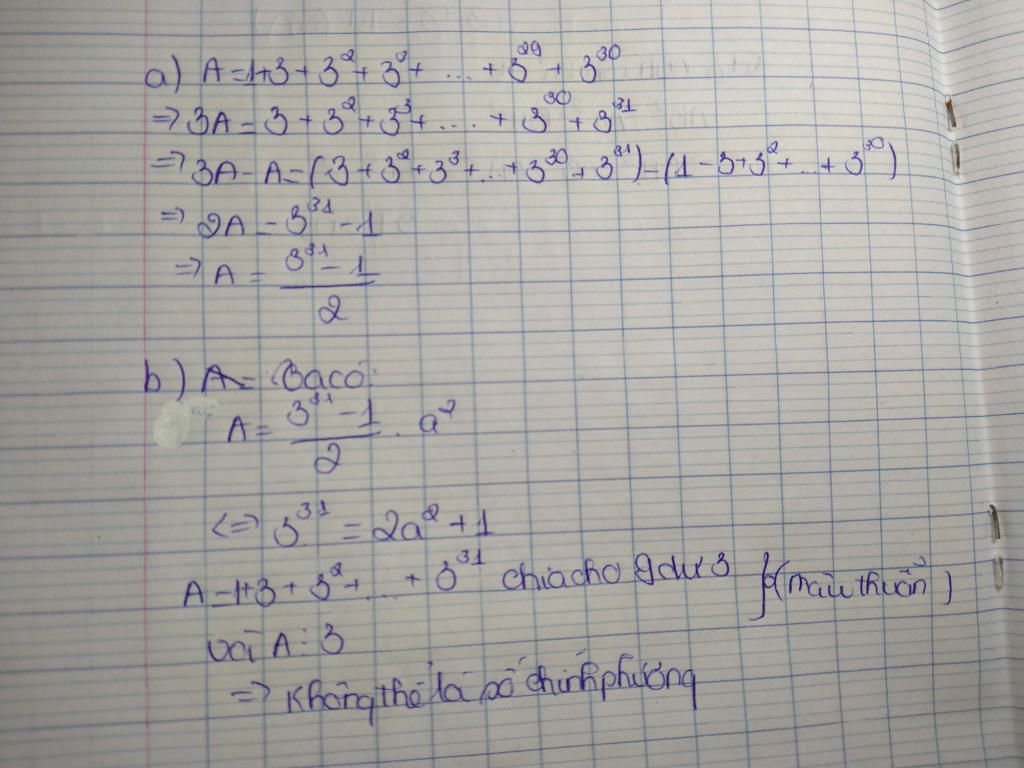 a) A = 1+3 + 3² + 3³ + ... + 3²⁹ + 3³⁰
=> 3A = 3 + 3² + 3³ + .... + 3³⁰ + 3³¹
=> 3A - A = (3 + 3² + 3³ + ... + 3³⁰ + 3³¹) - (1 - 3 + 3² + ... + 3³⁰)
=> 2A = 3³¹ - 1
=> A = (3³¹ - 1)/2
b) A = (3³¹ - 1)/2 . a²
<=> 3³¹ = 2a² + 1
A = 1+3 + 3² + ... + 3³¹ chia cho 9 dư 3 (mâu thuẫn)
với A : 3
=> Không thể là số chính phương